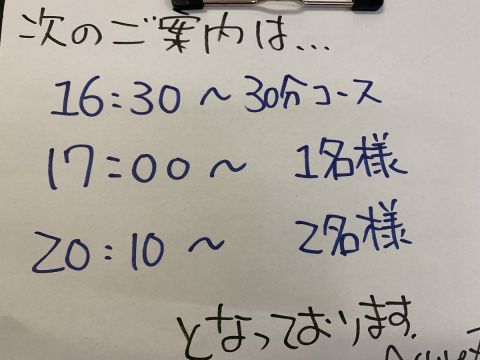 次のご案内は...
16:30 ~ 30分コース
17:00 ~ 1名様
20:10 ~ 2名様
となっております.